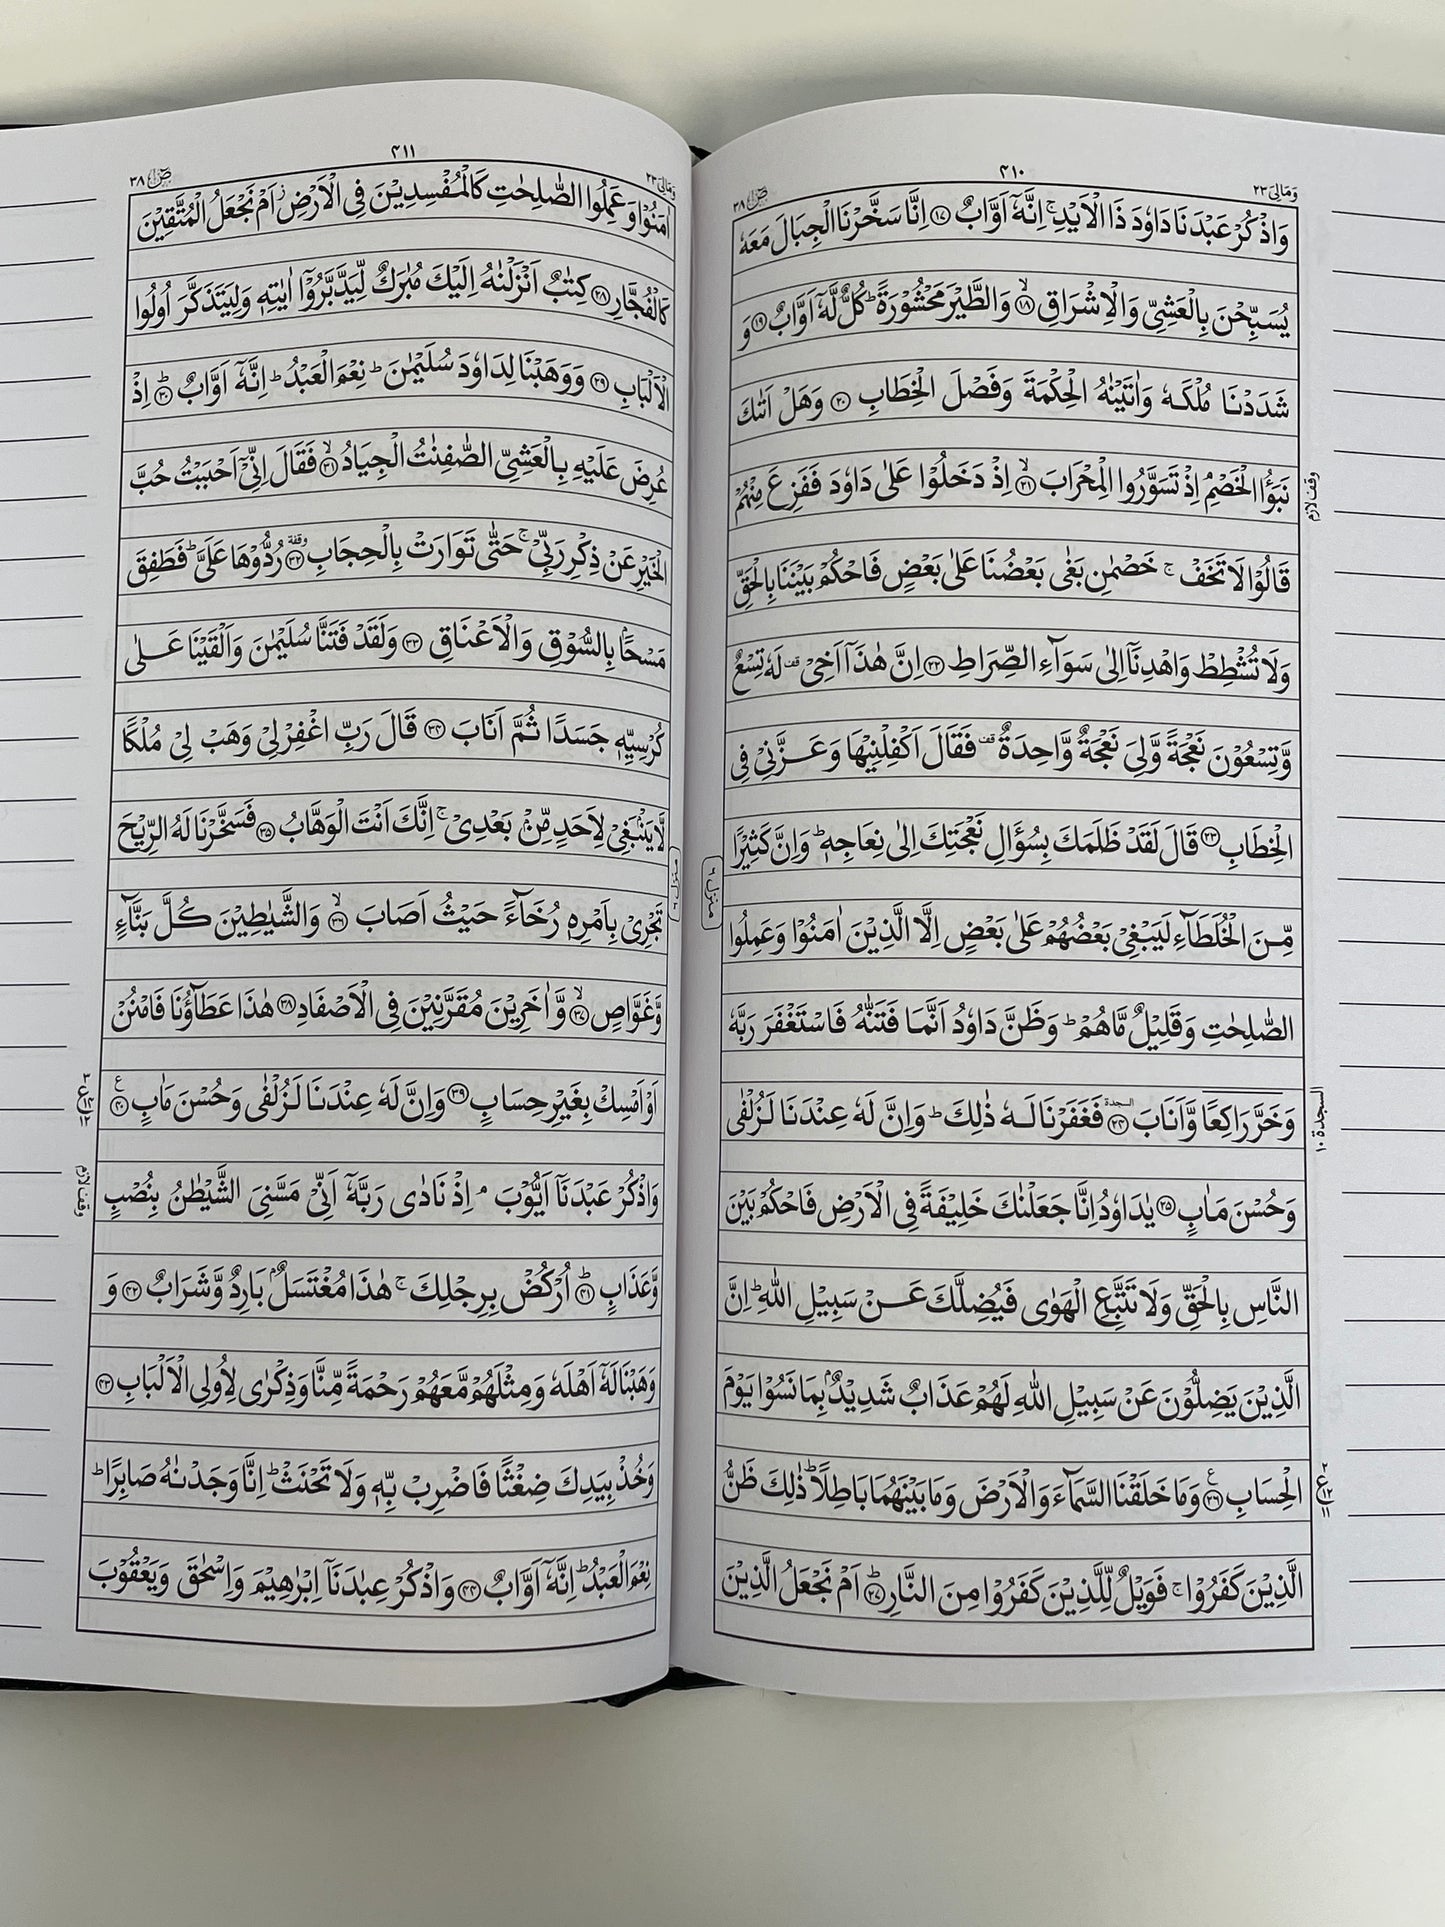 ۴۱۰
وَمَالِیَ ۲۳
صٓ ۳۸
وَاذْكُرْ عَبْدَنَا دَاوٗدَ ذَا الْاَيْدِ ۚ اِنَّهٗٓ اَوَّابٌ ﴿۱۷﴾ اِنَّا سَخَّرْنَا الْجِبَالَ مَعَهٗ
يُسَبِّحْنَ بِالْعَشِيِّ وَالْاِشْرَاقِ ﴿ۙ۱۸﴾ وَالطَّيْرَ مَحْشُوْرَةً ؕ كُلٌّ لَّهٗٓ اَوَّابٌ ﴿۱۹﴾ وَ
شَدَدْنَا مُلْكَهٗ وَاٰتَيْنٰهُ الْحِكْمَةَ وَفَصْلَ الْخِطَابِ ﴿۲۰﴾ وَهَلْ اَتٰىكَ
نَبَؤُا الْخَصْمِ ۘ اِذْ تَسَوَّرُوا الْمِحْرَابَ ﴿ۙ۲۱﴾ اِذْ دَخَلُوْا عَلٰى دَاوٗدَ فَفَزِعَ مِنْهُمْ
وقف لازم
قَالُوْا لَا تَخَفْ ۚ خَصْمٰنِ بَغٰى بَعْضُنَا عَلٰى بَعْضٍ فَاحْكُمْ بَيْنَنَا بِالْحَقِّ
وَلَا تُشْطِطْ وَاهْدِنَآ اِلٰى سَوَآءِ الصِّرَاطِ ﴿۲۲﴾ اِنَّ هٰذَآ اَخِيْ ۟ قف لَهٗ تِسْعٌ
وَّتِسْعُوْنَ نَعْجَةً وَّلِيَ نَعْجَةٌ وَّاحِدَةٌ ۟ قف فَقَالَ اَكْفِلْنِيْهَا وَعَزَّنِيْ فِي
الْخِطَابِ ﴿۲۳﴾ قَالَ لَقَدْ ظَلَمَكَ بِسُؤَالِ نَعْجَتِكَ اِلٰى نِعَاجِهٖ ؕ وَاِنَّ كَثِيْرًا
مِّنَ الْخُلَطَآءِ لَيَبْغِيْ بَعْضُهُمْ عَلٰى بَعْضٍ اِلَّا الَّذِيْنَ اٰمَنُوْا وَعَمِلُوا
منزل ۶
الصّٰلِحٰتِ وَقَلِيْلٌ مَّا هُمْ ؕ وَظَنَّ دَاوٗدُ اَنَّمَا فَتَنّٰهُ فَاسْتَغْفَرَ رَبَّهٗ
وَخَرَّ رَاكِعًا وَّاَنَابَ ﴿۲۴﴾ السجدة فَغَفَرْنَا لَهٗ ذٰلِكَ ؕ وَاِنَّ لَهٗ عِنْدَنَا لَزُلْفٰى
السجدة ۱۰
وَحُسْنَ مَاٰبٍ ﴿۲۵﴾ يٰدَاوٗدُ اِنَّا جَعَلْنٰكَ خَلِيْفَةً فِي الْاَرْضِ فَاحْكُمْ بَيْنَ
النَّاسِ بِالْحَقِّ وَلَا تَتَّبِعِ الْهَوٰى فَيُضِلَّكَ عَنْ سَبِيْلِ اللّٰهِ ؕ اِنَّ
الَّذِيْنَ يَضِلُّوْنَ عَنْ سَبِيْلِ اللّٰهِ لَهُمْ عَذَابٌ شَدِيْدٌۢ بِمَا نَسُوْا يَوْمَ
الْحِسَابِ ﴿۲۶﴾ ع وَمَا خَلَقْنَا السَّمَآءَ وَالْاَرْضَ وَمَا بَيْنَهُمَا بَاطِلًا ؕ ذٰلِكَ ظَنُّ
۲ ع ۱۲ ۱۱
الَّذِيْنَ كَفَرُوْا ۚ فَوَيْلٌ لِّلَّذِيْنَ كَفَرُوْا مِنَ النَّارِ ﴿ؕ۲۷﴾ اَمْ نَجْعَلُ الَّذِيْنَ
۴۱۱
وَمَالِیَ ۲۳
صٓ ۳۸
اٰمَنُوْا وَعَمِلُوا الصّٰلِحٰتِ كَالْمُفْسِدِيْنَ فِي الْاَرْضِ ؗ اَمْ نَجْعَلُ الْمُتَّقِيْنَ
كَالْفُجَّارِ ﴿۲۸﴾ كِتٰبٌ اَنْزَلْنٰهُ اِلَيْكَ مُبٰرَكٌ لِّيَدَّبَّرُوْٓا اٰيٰتِهٖ وَلِيَتَذَكَّرَ اُولُوا
الْاَلْبَابِ ﴿۲۹﴾ وَوَهَبْنَا لِدَاوٗدَ سُلَيْمٰنَ ؕ نِعْمَ الْعَبْدُ ؕ اِنَّهٗٓ اَوَّابٌ ﴿ؕ۳۰﴾ اِذْ
عُرِضَ عَلَيْهِ بِالْعَشِيِّ الصّٰفِنٰتُ الْجِيَادُ ﴿ۙ۳۱﴾ فَقَالَ اِنِّيْٓ اَحْبَبْتُ حُبَّ
الْخَيْرِ عَنْ ذِكْرِ رَبِّيْ ۚ حَتّٰى تَوَارَتْ بِالْحِجَابِ ﴿۳۲﴾ وقفة رُدُّوْهَا عَلَيَّ ؕ فَطَفِقَ
مَسْحًۢا بِالسُّوْقِ وَالْاَعْنَاقِ ﴿۳۳﴾ وَلَقَدْ فَتَنَّا سُلَيْمٰنَ وَاَلْقَيْنَا عَلٰى
كُرْسِيِّهٖ جَسَدًا ثُمَّ اَنَابَ ﴿۳۴﴾ قَالَ رَبِّ اغْفِرْ لِيْ وَهَبْ لِيْ مُلْكًا
لَّا يَنْۢبَغِيْ لِاَحَدٍ مِّنْۢ بَعْدِيْ ۚ اِنَّكَ اَنْتَ الْوَهَّابُ ﴿۳۵﴾ فَسَخَّرْنَا لَهُ الرِّيْحَ
تَجْرِيْ بِاَمْرِهٖ رُخَآءً حَيْثُ اَصَابَ ﴿ۙ۳۶﴾ وَالشَّيٰطِيْنَ كُلَّ بَنَّآءٍ
منزل ۶
وَّغَوَّاصٍ ﴿ۙ۳۷﴾ وَّاٰخَرِيْنَ مُقَرَّنِيْنَ فِي الْاَصْفَادِ ﴿۳۸﴾ هٰذَا عَطَآؤُنَا فَامْنُنْ
اَوْ اَمْسِكْ بِغَيْرِ حِسَابٍ ﴿۳۹﴾ وَاِنَّ لَهٗ عِنْدَنَا لَزُلْفٰى وَحُسْنَ مَاٰبٍ ﴿۴۰﴾ ع
۳ ع ۱۴ ۱۲
وَاذْكُرْ عَبْدَنَآ اَيُّوْبَ ۘ اِذْ نَادٰى رَبَّهٗٓ اَنِّيْ مَسَّنِيَ الشَّيْطٰنُ بِنُصْبٍ
وقف لازم
وَّعَذَابٍ ﴿ؕ۴۱﴾ اُرْكُضْ بِرِجْلِكَ ۚ هٰذَا مُغْتَسَلٌۢ بَارِدٌ وَّشَرَابٌ ﴿۴۲﴾ وَ
وَهَبْنَا لَهٗٓ اَهْلَهٗ وَمِثْلَهُمْ مَّعَهُمْ رَحْمَةً مِّنَّا وَذِكْرٰى لِاُولِي الْاَلْبَابِ ﴿۴۳﴾
وَخُذْ بِيَدِكَ ضِغْثًا فَاضْرِبْ بِّهٖ وَلَا تَحْنَثْ ؕ اِنَّا وَجَدْنٰهُ صَابِرًا ؕ
نِعْمَ الْعَبْدُ ؕ اِنَّهٗٓ اَوَّابٌ ﴿۴۴﴾ وَاذْكُرْ عِبٰدَنَآ اِبْرٰهِيْمَ وَاِسْحٰقَ وَيَعْقُوْبَ